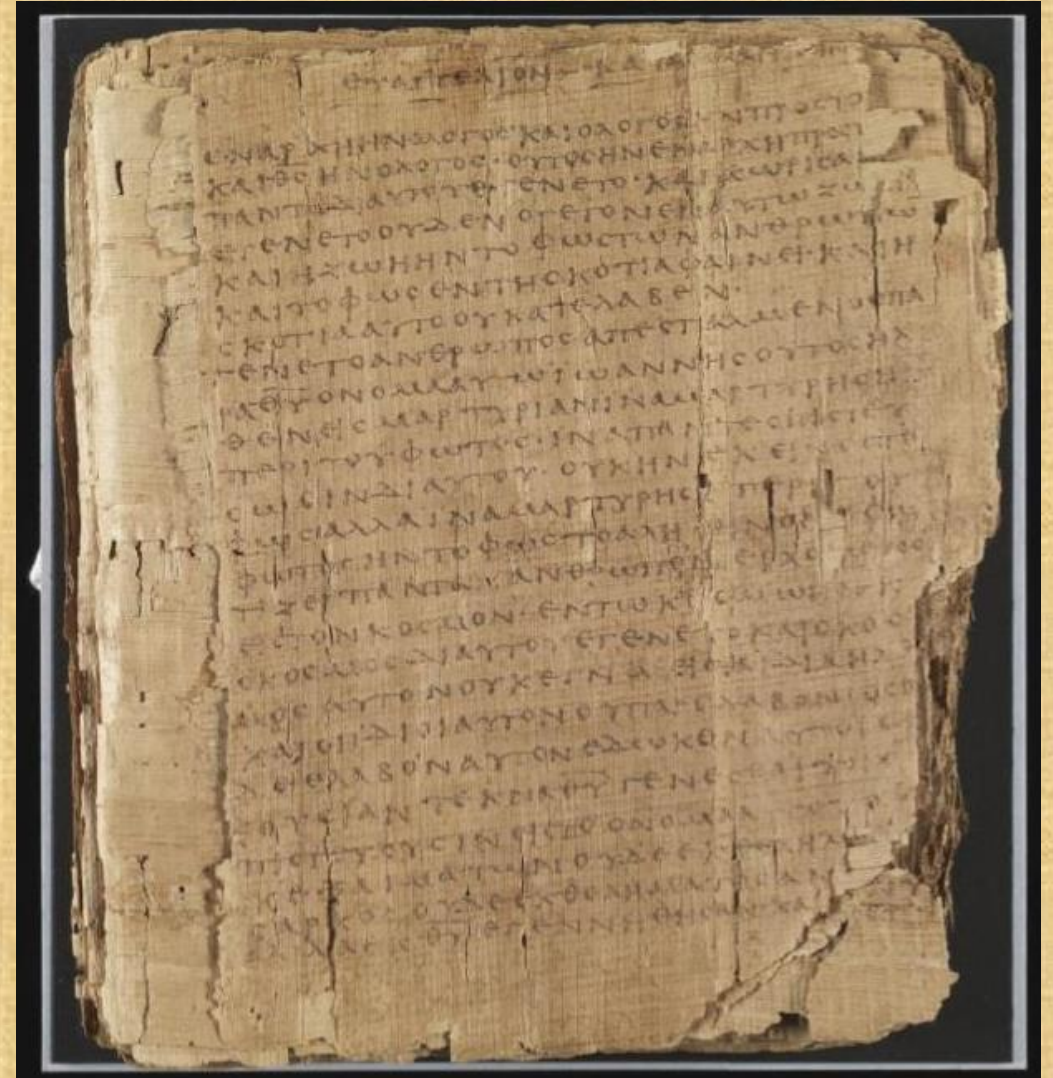 ΕΥΑΓΓΕΛΙΟΝ ΚΑΤΑ
ΕΝ ΑΡΧΗ ΗΝ Ο ΛΟΓΟϹ ΚΑΙ Ο ΛΟΓΟϹ ΗΝ ΠΡΟϹ ΤΟ
ΚΑΙ Θ̅Ϲ̅ ΗΝ Ο ΛΟΓΟϹ· ΟΥΤΟϹ ΗΝ ΕΝ ΑΡΧΗ ΠΡΟϹ
ΠΑΝΤΑ ΔΙ ΑΥΤΟΥ ΕΓΕΝΕΤΟ· ΚΑΙ ΧΩΡΙϹ
ΕΓΕΝΕΤΟ ΟΥΔΕΝ Ο ΓΕΓΟΝΕΝ ΕΝ ΑΥΤΩ ΖΩ
ΚΑΙ Η ΖΩΗ ΗΝ ΤΟ ΦΩϹ ΤΩΝ ΑΝΘΡΩΠΩ
ΚΑΙ ΤΟ ΦΩϹ ΕΝ ΤΗ ϹΚΟΤΙΑ ΦΑΙΝΕΙ· ΚΑΙ Η
ϹΚΟΤΙΑ ΑΥΤΟ ΟΥ ΚΑΤΕΛΑΒΕΝ·
ΕΓΕΝΕΤΟ ΑΝΘΡΩΠΟϹ ΑΠΕϹΤΑΛΜΕΝΟϹ ΠΑ
ΡΑ Θ̅Υ̅ ΟΝΟΜΑ ΑΥΤΩ ΙΩΑΝΝΗϹ ΟΥΤΟϹ ΗΛ
ΘΕΝ ΕΙϹ ΜΑΡΤΥΡΙΑΝ ΙΝΑ ΜΑΡΤΥΡΗϹΗ
ΠΕΡΙ ΤΟΥ ΦΩΤΟϹ· ΙΝΑ ΠΑΝΤΕϹ
ϹΩϹΙΝ ΔΙ ΑΥΤΟΥ· ΟΥΚ ΗΝ ΕΚΕΙΝΟϹ ΤΟ
ΦΩϹ ΑΛΛΑ ΙΝΑ ΜΑΡΤΥΡΗϹΗ ΠΕΡΙ ΤΟΥ
ΦΩΤΟϹ ΗΝ ΤΟ ΦΩϹ ΤΟ ΑΛΗΘΙΝΟΝ Ο ΦΩ
ΤΙΖΕΙ ΠΑΝΤΑ ΑΝΘΡΩΠΟΝ ΕΡΧΟΜΕΝΟ
ΕΙϹ ΤΟΝ ΚΟϹΜΟΝ· ΕΝ ΤΩ ΚΟϹΜΩ ΗΝ Κ
Ο ΚΟϹΜΟϹ ΔΙ ΑΥΤΟΥ ΕΓΕΝΕΤΟ ΚΑΙ Ο ΚΟϹ
ΜΟϹ ΑΥΤΟΝ ΟΥΚ ΕΓΝΩ ΕΙϹ ΤΑ ΙΔΙΑ ΗΛ
ΚΑΙ ΟΙ ΙΔΙΟΙ ΑΥΤΟΝ ΟΥ ΠΑΡΕΛΑΒΟΝ ΟϹΟ
Ι ΔΕ ΕΛΑΒΟΝ ΑΥΤΟΝ ΕΔΩΚΕΝ ΑΥΤΟΙϹ Ε
ΞΟΥϹΙΑΝ ΤΕΚΝΑ Θ̅Υ̅ ΓΕΝΕϹΘΑΙ ΤΟΙϹ
ΠΙϹΤΕΥΟΥϹΙΝ ΕΙϹ ΤΟ ΟΝΟΜΑ
ΟΥΚ ΕΞ ΑΙΜΑΤΩΝ ΟΥΔΕ ΕΚ ΘΕΛΗΜΑ
ϹΑΡΚΟϹ ΟΥΔΕ ΕΚ ΘΕΛΗΜΑΤΟϹ ΑΝ
ΑΛΛΑ ΕΚ Θ̅Υ̅ ΕΓΕΝΝΗΘΗϹΑΝ ΚΑΙ